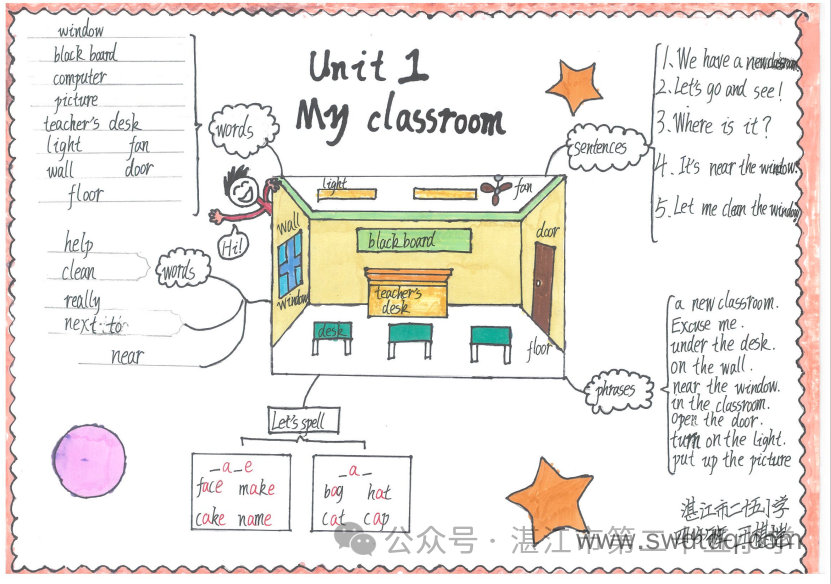 Unit 1
My classroom
words
window
black board
computer
picture
teacher's desk
light fan
wall door
floor
words
help
clean
really
next to
near
Hi!
light
fan
wall
window
black board
door
teacher's
desk
desk
floor
sentences
1. We have a new classroom
2. Let's go and see!
3. Where is it?
4. It's near the window.
5. Let me clean the window
phrases
a new classroom.
Excuse me.
under the desk.
on the wall.
near the window.
in the classroom.
open the door.
turn on the light.
put up the picture
Let's spell
_a_e
face make
cake name
_a_
bag hat
cat cap
湛江市二十五小学
公众号 · 湛江市第二